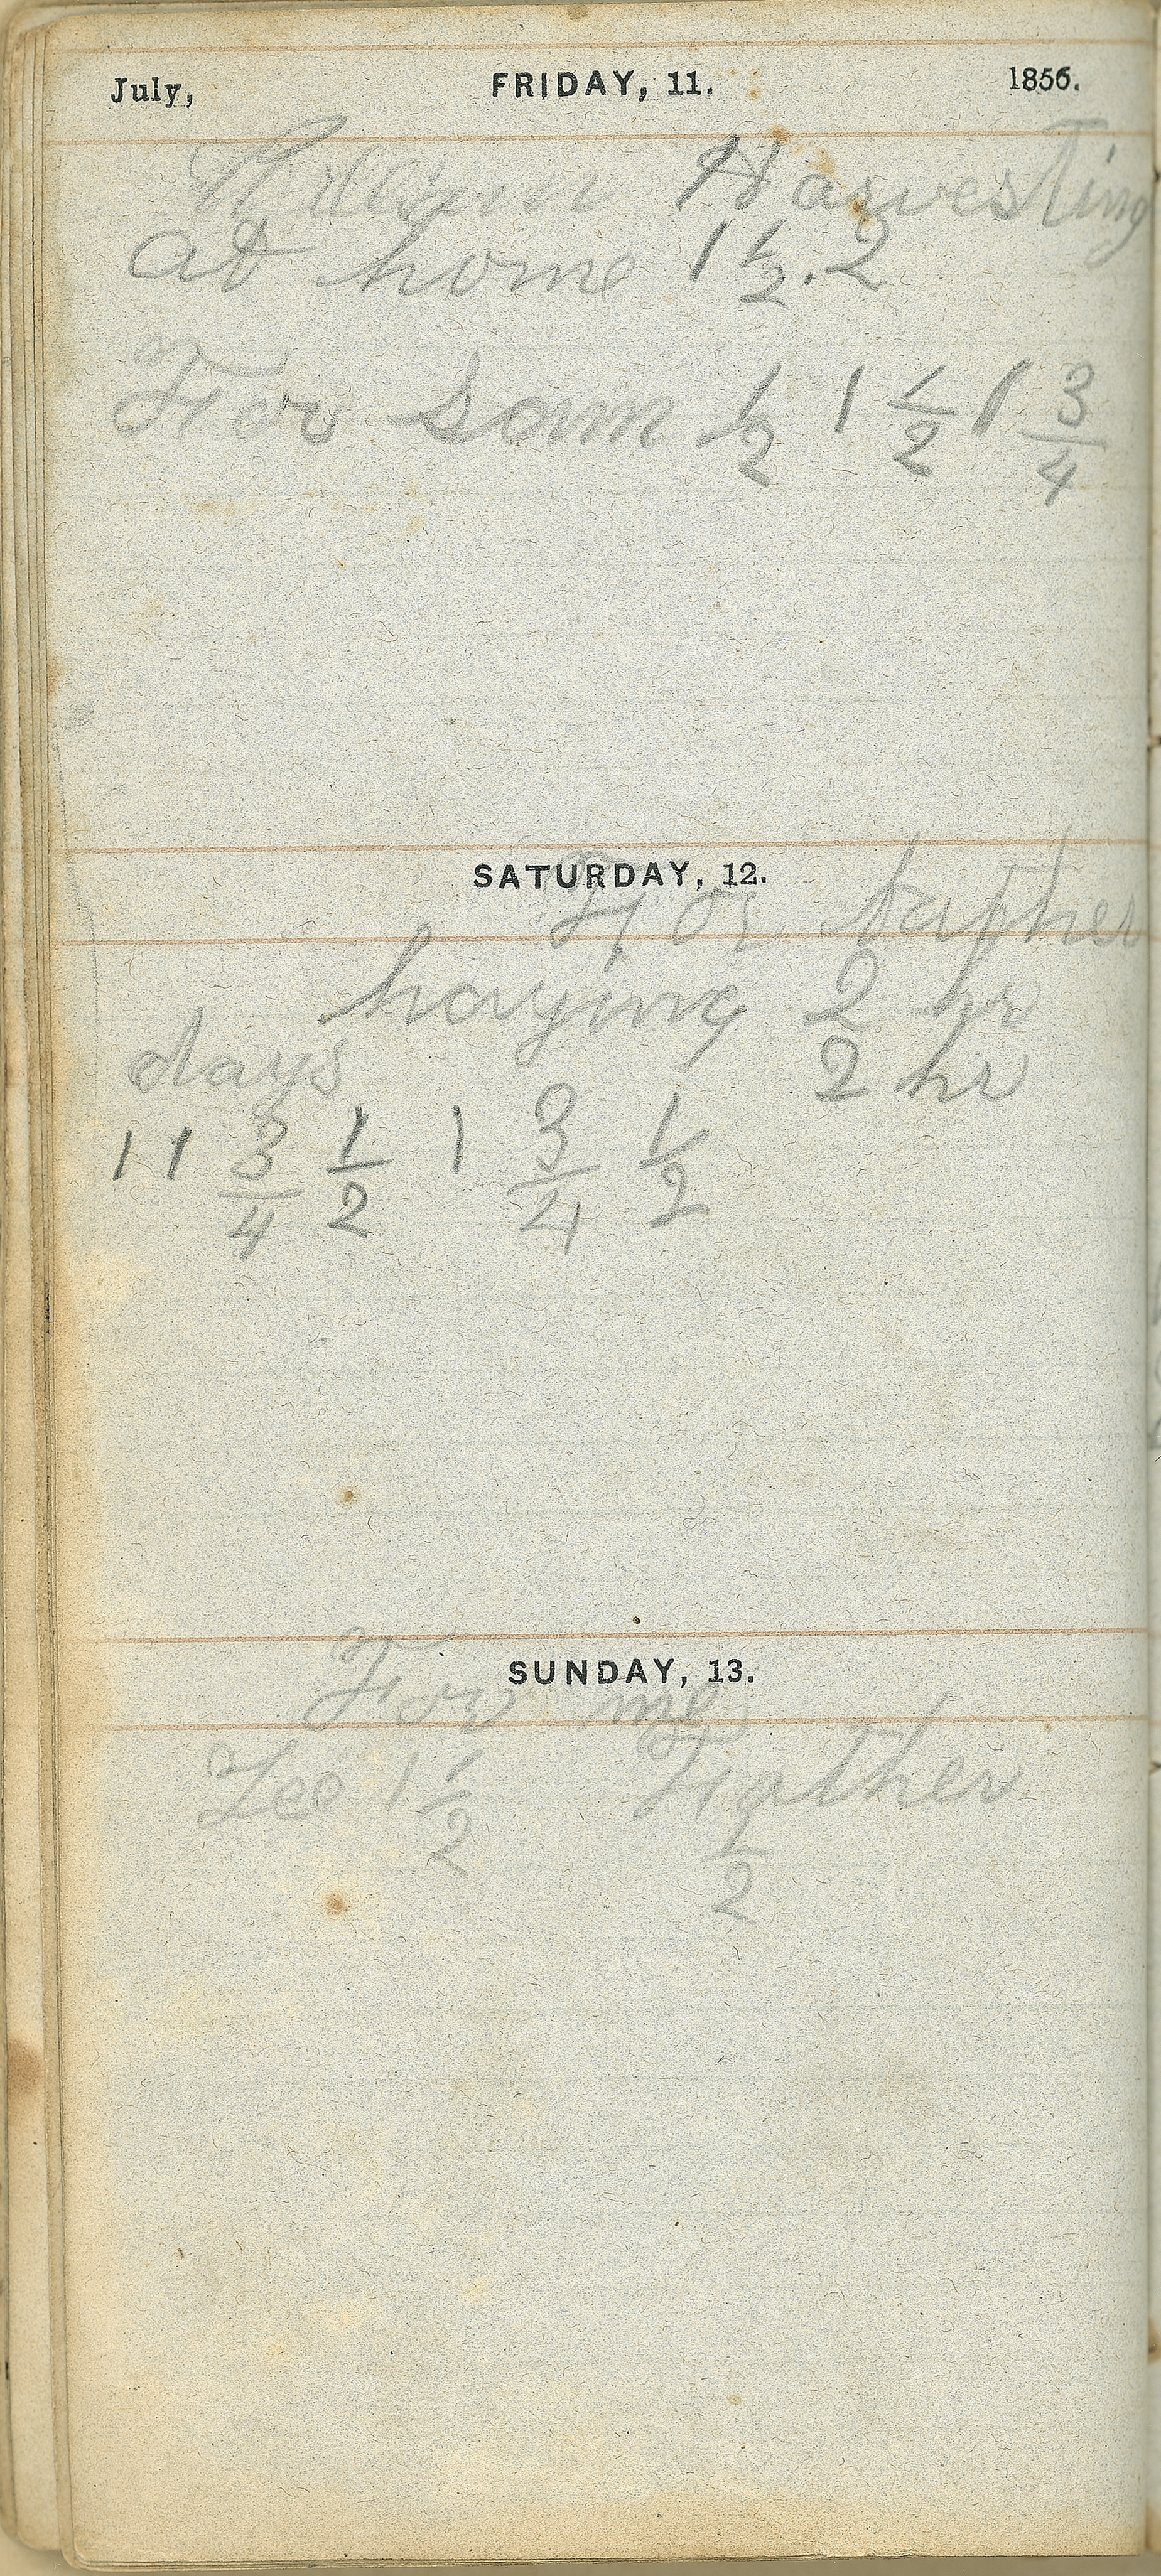 July, FRIDAY, 11. 1856.
William Harvesting
at home 1 1/2 . 2
For Sam 1/2 1 1/2 1 3/4
SATURDAY, 12.
For father
haying 2 hr
days 2 hr
1 1 3/4 1/2 1 3/4 1/2
SUNDAY, 13.
For me
Lee 1 1/2 Father
1/2